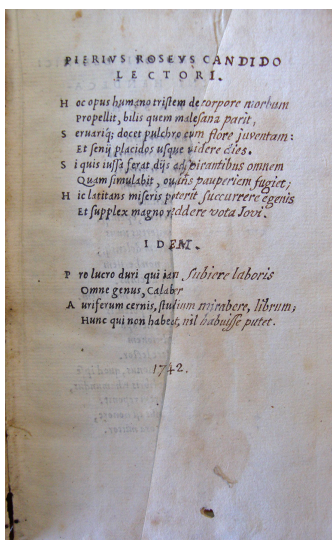 PIERIVS ROSEVS CANDIDO
LECTORI.
Hoc opus humano tristem de corpore morbum
Propellit, bilis quem malesana parit,
Seruariq; docet pulchro cum flore juventam:
Et senij placidos usque videre dies.
Si quis iussa ferat dijs adspirantibus omnem
Quam simulabit, ouans pauperiem fugiet;
Hic latitans miseris poterit succurrere egenis
Et supplex magno reddere vota Iovi.
IDEM.
Pro lucro duri qui iam subiere laboris
Omne genus, Calaber
Auriferum cernis, studium mirabere, librum;
Hunc qui non habeat, nil habuisse putet.
1742.